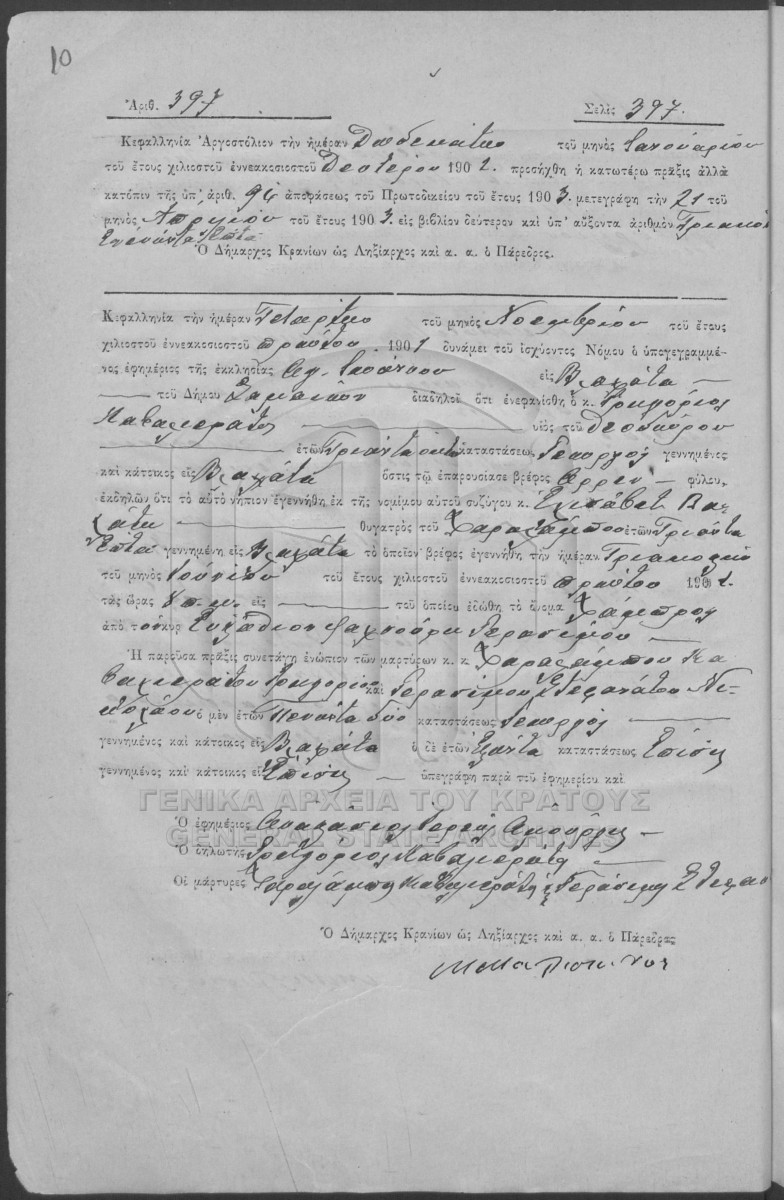 10
Ἀριθ. 397 Σελὶς 397.
Κεφαλληνία Ἀργοστόλιον τὴν ἡμέραν Δωδεκάτην τοῦ μηνὸς Ἰανουαρίου
τοῦ ἔτους χιλιοστοῦ ἐννεακοσιοστοῦ Δευτέρου 1902. προσήχθη ἡ κατωτέρω πρᾶξις ἀλλὰ
κατόπιν τῆς ὑπ' ἀριθ. 94 ἀποφάσεως τοῦ Πρωτοδικείου τοῦ ἔτους 1903. μετεγράφη τὴν 21 τοῦ
μηνὸς Ἀπριλίου τοῦ ἔτους 1903. εἰς βιβλίον δεύτερον καὶ ὑπ' αὔξοντα ἀριθμὸν Τριακόσια
Ἐνενήντα Ἑπτὰ
Ὁ Δήμαρχος Κρανίων ὡς Ληξίαρχος καὶ α. α. ὁ Πάρεδρος.
Κεφαλληνία τὴν ἡμέραν Τετάρτην τοῦ μηνὸς Νοεμβρίου τοῦ ἔτους
χιλιοστοῦ ἐννεακοσιοστοῦ πρώτου 1901 δυνάμει τοῦ ἰσχύοντος Νόμου ὁ ὑπογεγραμμέ-
νος ἐφημέριος τῆς ἐκκλησίας Ἁγ. Ἰωάννου εἰς Βλαχάτα
τοῦ Δήμου Σαμαίων διαδηλοῖ ὅτι ἐνεφανίσθη ὁ κ. Γρηγόριος
Καβαλιεράτος υἱὸς τοῦ Θεοδώρου
ἐτῶν Τριάντα ὀκτὼ καταστάσεως Γεωργὸς γεννημένος
καὶ κάτοικος εἰς Βλαχάτα ὅστις τῷ ἐπαρουσίασε βρέφος ἄρρεν φύλου,
ἐκδηλῶν ὅτι τὸ αὐτὸ νήπιον ἐγεννήθη ἐκ τῆς νομίμου αὐτοῦ συζύγου κ. Ἐλισάβετ Βλα-
χάτη θυγατρὸς τοῦ Χαραλάμπου ἐτῶν Τριάντα
Ἑπτὰ γεννημένη εἰς Βλαχάτα τὸ ὁποῖον βρέφος ἐγεννήθη τὴν ἡμέραν Τριακοστὴν
τοῦ μηνὸς Ἰουνίου τοῦ ἔτους χιλιοστοῦ ἐννεακοσιοστοῦ πρώτου 1901.
τὰς ὥρας 8 π.μ. εἰς τοῦ ὁποίου ἐδώθη τὸ ὄνομα Χάμπρος
ἀπὸ τὸν κυρ Γερασίμου
Ἡ παροῦσα πρᾶξις συνετάγη ἐνώπιον τῶν μαρτύρων κ. κ. Χαραλάμπου Κα
βαλιεράτου Γρηγορίου καὶ Γερασίμου Στεφανάτου Νι-
κολάου ὁ μὲν ἐτῶν Πενήντα δύο καταστάσεως Γεωργὸς
γεννημένος καὶ κάτοικος εἰς Βλαχάτα ὁ δὲ ἐτῶν Ἑξήντα καταστάσεως Ἐπίσης
γεννημένος καὶ κάτοικος εἰς Ἐπίσης ὑπεγράφη παρὰ τοῦ ἐφημερίου καὶ
ΓΕΝΙΚΑ ΑΡΧΕΙΑ ΤΟΥ ΚΡΑΤΟΥΣ
Ὁ ἐφημέριος Ἀθανάσιος Ἱερεὺς
GENERAL STATE ARCHIVES
Ὁ δηλωτὴς Γρηγόριος Καβαλιεράτος
Οἱ μάρτυρες Χαραλάμπης Καβαλιεράτος Γεράσιμος Στεφαν
Ὁ Δήμαρχος Κρανίων ὡς Ληξίαρχος καὶ α. α. ὁ Πάρεδρος